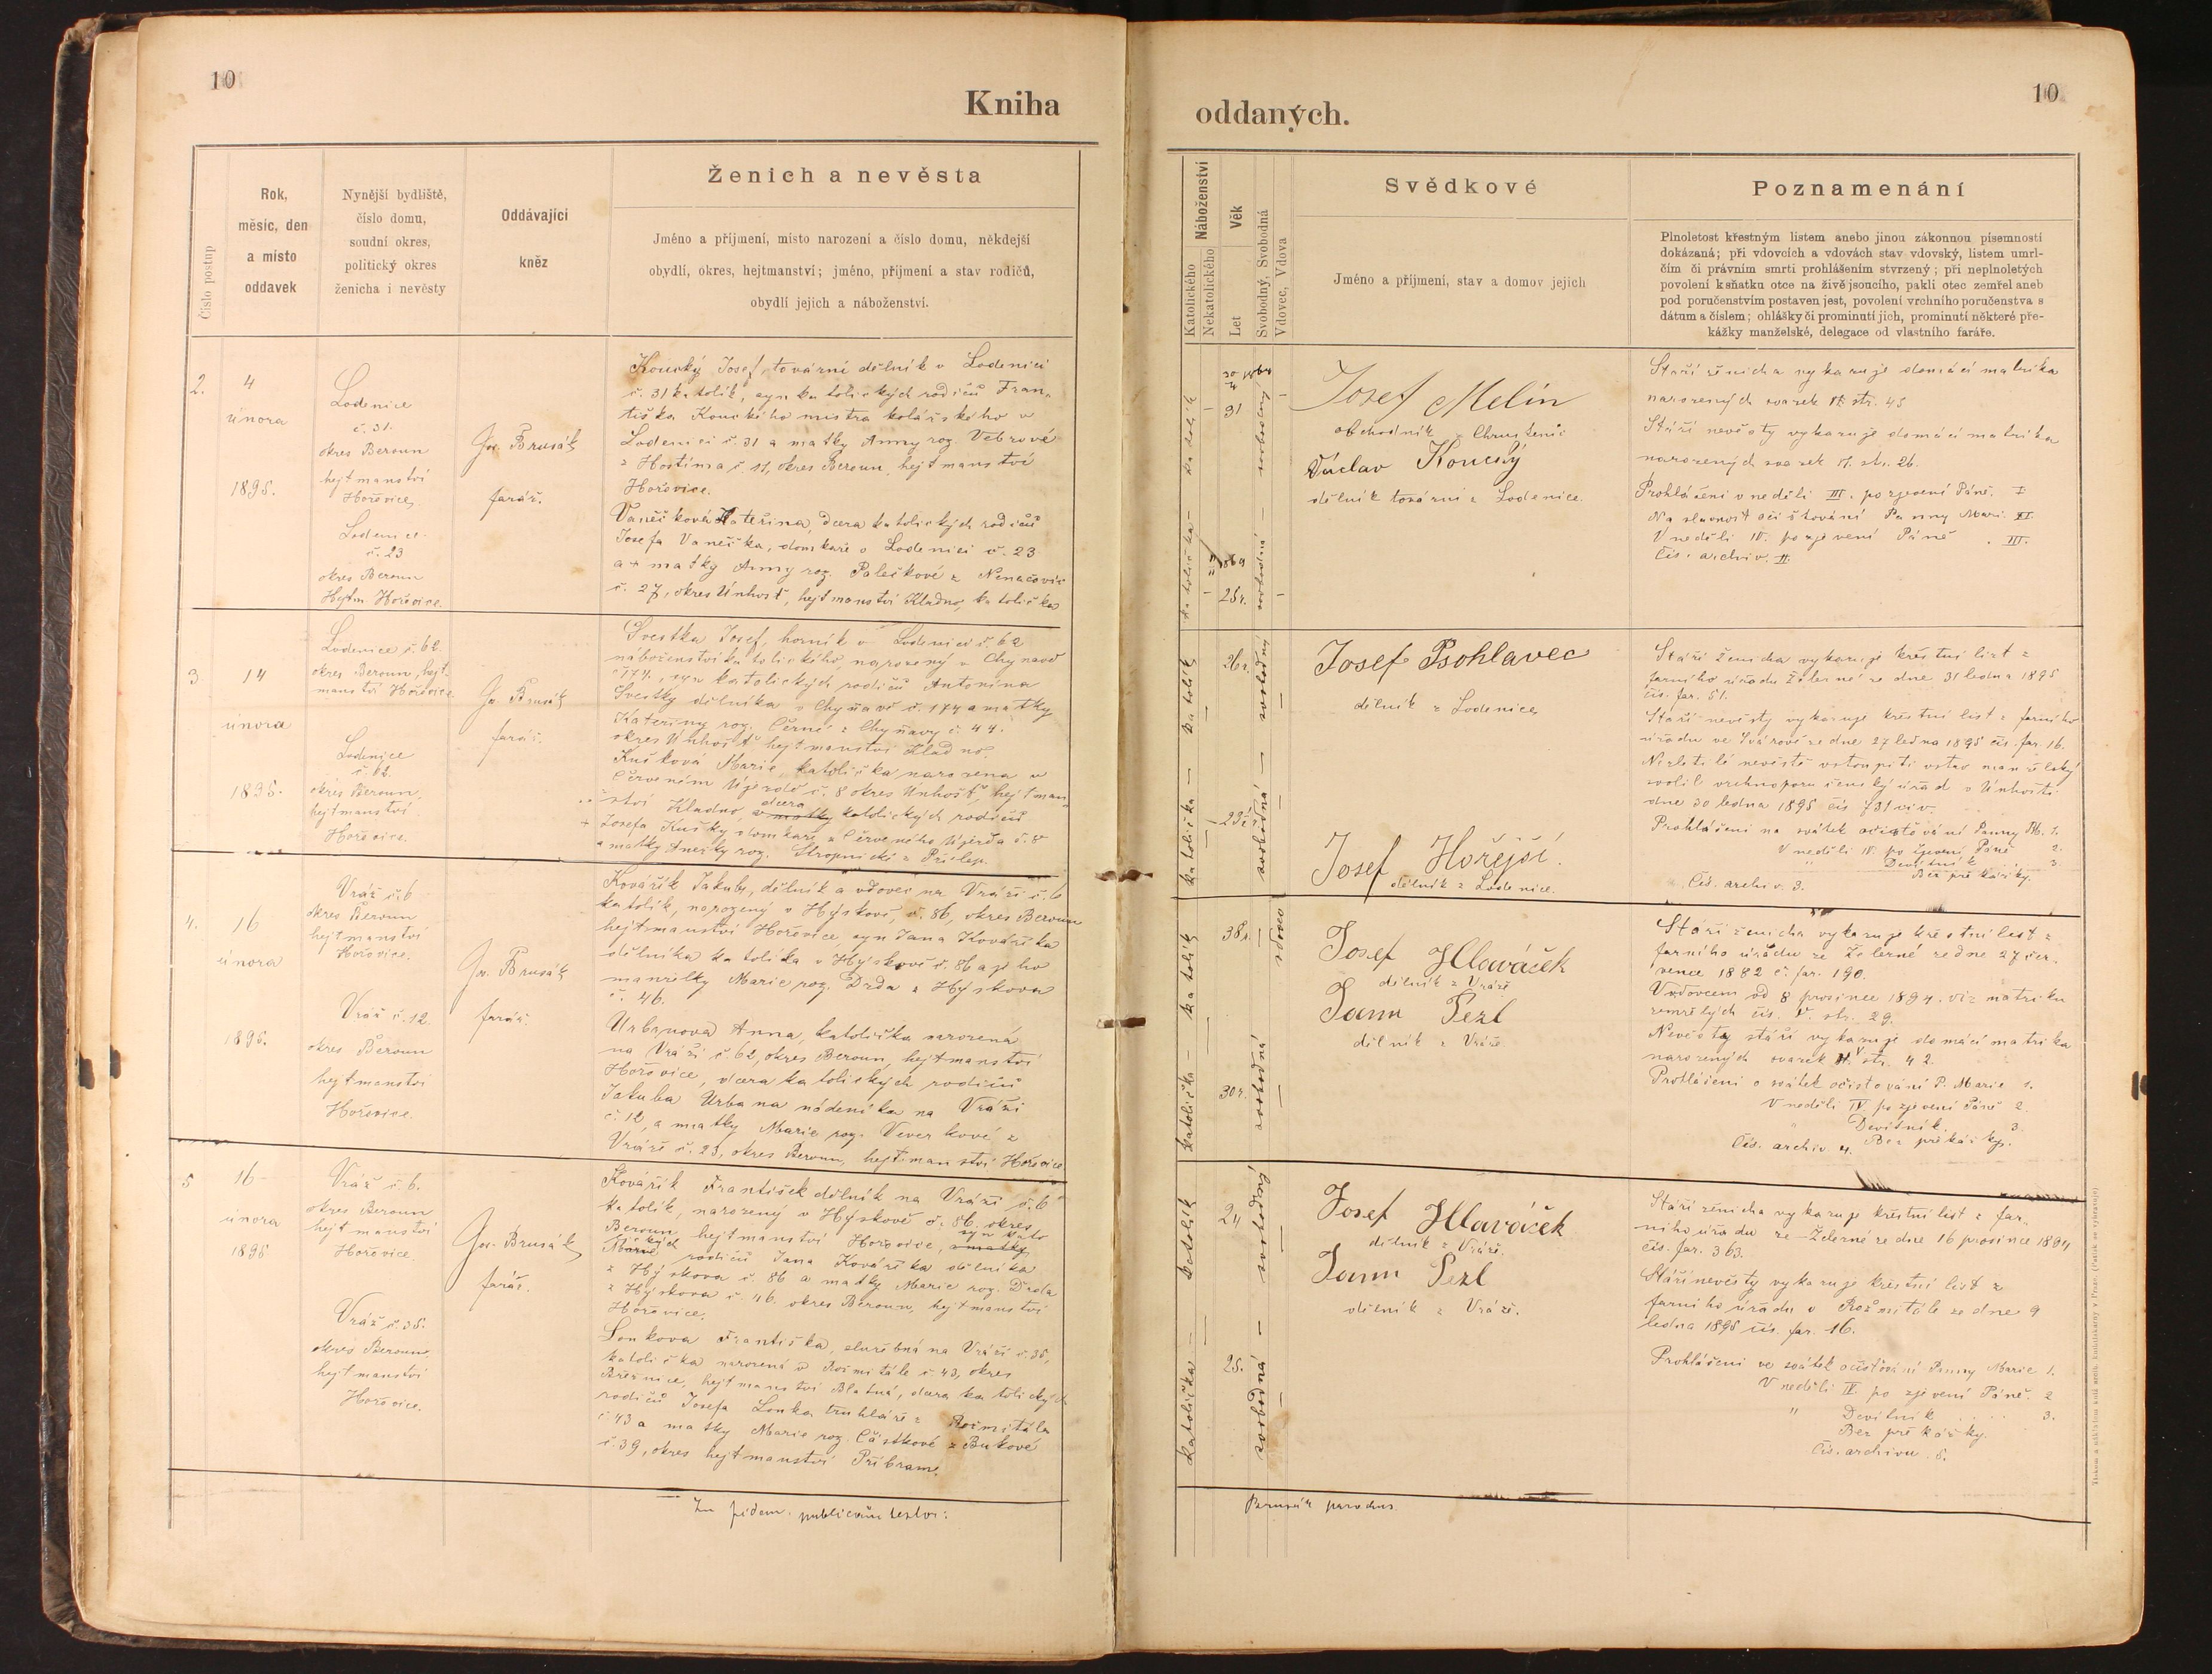 10
Kniha
Ženich a nevěsta
Číslo postup
Rok,
měsíc, den
a místo
oddavek
Nynější bydliště,
číslo domu,
soudní okres,
politický okres
ženicha i nevěsty
Oddávající
kněz
Jméno a příjmení, místo narození a číslo domu, někdejší
obydlí, okres, hejtmanství; jméno, příjmení a stav rodičů,
obydlí jejich a náboženství.
2.
4
února
1895.
Lodenice
č. 31.
okres Beroun
hejtmanství
Hořovice,
Lodenice
č. 23
okres Beroun
Hejtm. Hořovice.
Jos. Brusák
farář.
Koucký Josef, tovární dělník v Lodenici
č. 31 katolík, syn katolických rodičů Fran-
tiška Kouckého mistra kolářského v
Lodenici č. 31 a matky Anny roz. Vebrové
z Hostíma č. 11, okres Beroun, hejtmanství
Hořovice.
Vaněčková Kateřina, dcera katolických rodičů
Josefa Vaněčka, domkaře v Lodenici č. 23
a + matky Anny roz. Palečkové z Nenačovic
č. 27, okres Únhošť, hejtmanství Kladno, katolička
3
14
února
1895.
Lodenice č. 62.
okres Beroun, hejt-
manství Hořovice
Lodenice
č. 62.
okres Beroun,
hejtmanství
Hořovice.
Jos. Brusák
farář.
Švestka Josef, horník v Lodenici č. 62
náboženství katolického, narozený v Chyňavě
č 174, syn katolických rodičů Antonína
Švestky dělníka v Chyňavě č. 174 a matky
Kateřiny roz. Černé z Chyňavy č. 44.
okres Únhošť hejtmanství Kladno.
Kušková Marie, katolička narozena v
Červeném Újezdě č. 8 okres Únhošť, hejtman-
ství Kladno, dcera katolických rodičů
+ Josefa Kušky domkaře z Červeného Újezda č. 8
a matky Anežky roz. Stropnické z Přílep.
4.
16
února
1895.
Vráž č. 6
okres Beroun
hejtmanství
Hořovice.
Vráž č. 12
okres Beroun
hejtmanství
Hořovice.
Jos. Brusák
farář.
Kovářík Jakub, dělník a vdovec na Vráži č. 6
katolík, narozený v Hýskově, č. 86, okres Beroun
hejtmanství Hořovice, syn Jana Kováříka
dělníka katolíka v Hýskově č. 86 a jeho
manželky Marie roz. Drda z Hýskova
č. 46.
Urbanová Anna, katolička narozená
na Vráži č. 62, okres Beroun, hejtmanství
Hořovice, dcera katolických rodičů
Jakuba Urbana nádeníka na Vráži
č. 12, a matky Marie roz. Veverkové z
Vráže č. 23, okres Beroun, hejtmanství Hořovice
5
16
února
1895
Vráž č. 6.
okres Beroun
hejtmanství
Hořovice
Vráž č. 35.
okres Beroun,
hejtmanství
Hořovice.
Jos. Brusák
farář.
Kovářík František dělník na Vráži č. 6
katolík, narozený v Hýskově č. 86. okres
Beroun, hejtmanství Hořovice, syn kato
lických rodičů Jana Kováříka dělníka
z Hýskova č. 86 a matky Marie roz. Drda
z Hýskova č. 46. okres Beroun, hejtmanství
Hořovice.
Lonkova Františka, služebná na Vráži č. 35,
katolička narozená v Rožmitále č. 43, okres
Březnice, hejtmanství Blatná, dcera katolických
rodičů Josefa Lonka truhláře z Rožmitálu
č 43 a matky Marie roz. Částkové z Bukové
č. 39, okres hejtmanství Příbram.
In fidem publicam testor:
10
oddaných.
Náboženství
Katolického
Nekatolického
Věk
Let
Svobodný, Svobodná
Vdovec, Vdova
Svědkové
Jméno a příjmení, stav a domov jejich
Poznamenání
Plnoletost křestným listem anebo jinou zákonnou písemností
dokázaná; při vdovcích a vdovách stav vdovský, listem umrl-
čím či právním smrti prohlášením stvrzený; při neplnoletých
povolení k sňatku otce na živě jsoucího, pakli otec zemřel aneb
pod poručenstvím postaven jest, povolení vrchního poručenstva s
dátum a číslem; ohlášky či prominutí jich, prominutí některé pře-
kážky manželské, delegace od vlastního faráře.
katolík
katolička
31
1869
25 r.
svobodný
svobodná
Josef Melín
obchodník z Chrustenic
Václav Koucký
dělník tovární z Lodenice.
Staří ženicha vykazuje domácí matrika
narozených svazek IV. str. 45
Stáří nevěsty vykazuje domácí matrika
narozených svazek IV. str. 26.
Prohlášeni v neděli III. po zjevení Páně. I
Na slavnost očišťování Panny Marie. II.
V neděli IV. po zjevení Páně . III.
Čís. archiv. II.
katolík
katolička
26 r.
svobodný
svobodná
Josef Psohlavec
dělník z Lodenice
Josef Hořejší.
dělník z Lodenice.
Stáří ženicha vykazuje křestní list z
farního úřadu Železné ze dne 31 ledna 1895
čís. far. 51.
Stáří nevěsty vykazuje křestní list z farního
úřadu ve Svárově ze dne 27 ledna 1895 čís. far. 16.
Nezletilé nevěstě vstoupiti v stav manželský
svolil vrchnoporučenský úřad v Únhošti
dne 30 ledna 1895 čís 731 civ.
Prohlášeni na svátek očišťování Panny M. 1.
V neděli IV. po zjevení Páně 2.
" Devítník 3.
Bez překážky.
Čís. archiv. 3.
katolík
katolička
38 r.
30 r.
vdovec
svobodná
Josef Hlaváček
dělník z Vráže
Jann Pezl
dělník z Vráže.
Stáří ženicha vykazuje křestní list z
farního úřadu ze Železné ze dne 27 čer-
vence 1882 č. far. 190.
Vdovcem od 8 prosince 1894. viz matriku
zemřelých čís. V. str. 29.
Nevěsty stáří vykazuje domácí matrika
narozených svazek IV. str. 42.
Prohlášeni o svátek očistování P. Marie 1.
V neděli IV. po zjevení Páně 2.
" Devítník. 3.
Bez překážky.
Čís. archiv 4.
katolík
katolička
24
25.
svobodný
svobodná
Josef Hlaváček
dělník z Vráže.
Jann Pezl
dělník z Vráže.
Stáří ženicha vykazuje křestní list z far-
ního úřadu ze Železné ze dne 16 prosince 1894
čís. far. 363.
Stáří nevěsty vykazuje křestní list z
farního úřadu v Rožmitále ze dne 9
ledna 1895 čís. far. 16.
Prohlášeni ve svátek očišťování Panny Marie 1.
V neděli IV. po zjevení Páně. 2
" Devítník . . . . 3.
Bez překážky.
Čís. archivu 5.
Brusák parochus.